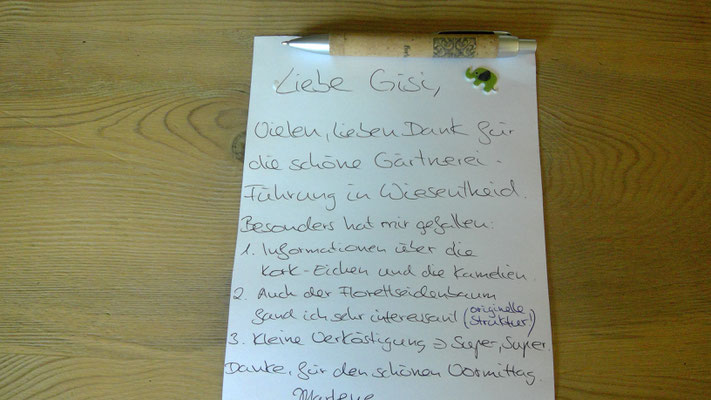 Liebe Gisi,
Vielen, lieben Dank für
die schöne Gärtnerei-
Führung in Wiesentheid.
Besonders hat mir gefallen:
1. Informationen über die
Kork-Eichen und die Kamelien.
2. Auch der Florettseidenbaum
fand ich sehr interessant (originelle
Struktur!)
3. Kleine Verköstigung ⇒ Super, Super.
Danke, für den schönen Vormittag.
Marlene